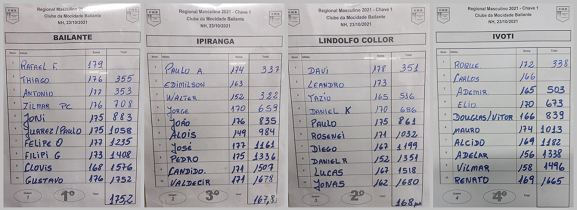 Regional Masculino 2021 - Chave 1
Clube da Mocidade Bailante
NH, 23/10/2021
BAILANTE
RAFAEL F. 179
THIAGO 176 355
ANTONIO 177 353
ZILMAR PC. 176 708
JONI 175 883
JUAREZ/PAULO 175 1058
FELIPE O 177 1235
FILIPI G 173 1408
CLOVIS 168 1576
GUSTAVO 176 1752
1º
175,2
Regional Masculino 2021 - Chave 1
Clube da Mocidade Bailante
NH, 23/10/2021
IPIRANGA
PAULO A. 174 337
EDIMILSON 163
WALTER 152 322
JORGE 170 659
JOÃO 176 835
ALOIS 149 984
JOSÉ 177 1161
PEDRO 175 1336
CANDIDO. 171 1507
VALDECIR 171 1678
3º
167,8
Regional Masculino 2021 - Chave 1
Clube da Mocidade Bailante
NH, 23/10/2021
LINDOLFO COLLOR
DAVI 178 351
LEANDRO 173
TAZIO 165 516
DANIEL K 170 686
PAULO 175 861
ROSENEI 171 1032
DIEGO 167 1199
DANIEL R 152 1351
LUCAS 167 1518
JONAS 162 1680
2º
168
Regional Masculino 2021 - Chave 1
Clube da Mocidade Bailante
NH, 23/10/2021
IVOTI
ROQUE 172 338
CARLOS 166
ADEMIR 165 503
ELIO 170 673
DOUGLAS/VITOR 166 839
MAURO 174 1013
ALCIDO 169 1182
ADELAR 156 1338
VILMAR 158 1496
RENATO 169 1665
4º